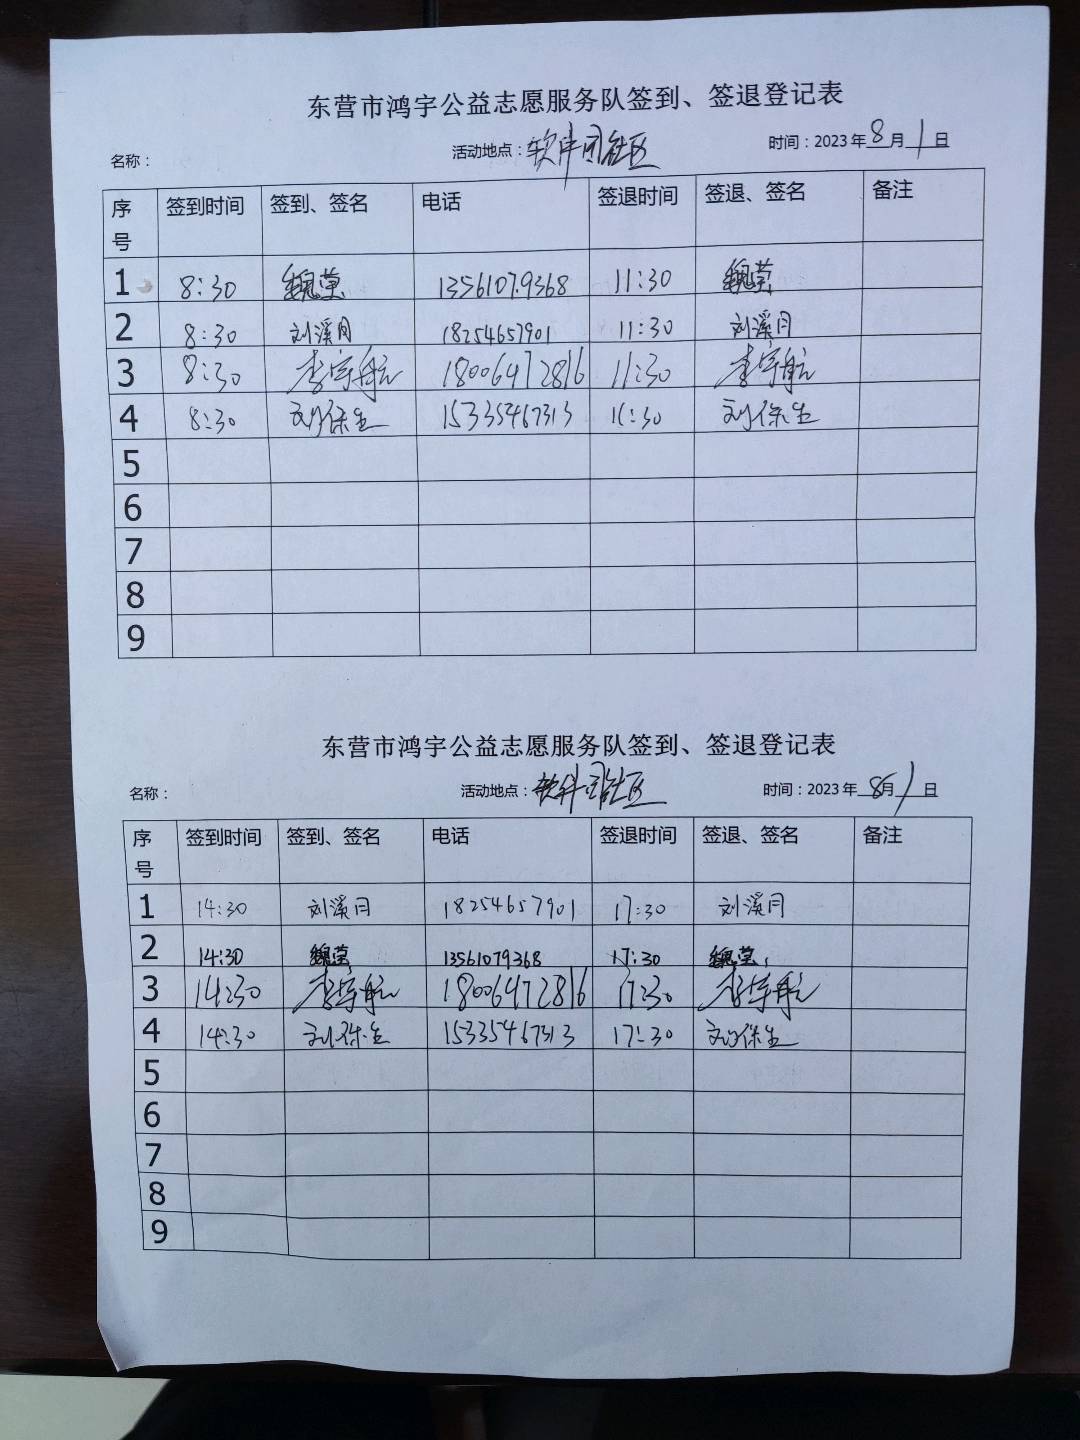 东营市鸿宇公益志愿服务队签到、签退登记表
名称： 活动地点：软件园社区 时间：2023年8月1日
序号 签到时间 签到、签名 电话 签退时间 签退、签名 备注
1 8:30 魏莹 13561079368 11:30 魏莹
2 8:30 刘溪月 18254657901 11:30 刘溪月
3 8:30 李宇航 18006472816 11:30 李宇航
4 8:30 刘保生 15335467313 11:30 刘保生
5
6
7
8
9
东营市鸿宇公益志愿服务队签到、签退登记表
名称： 活动地点：软件园社区 时间：2023年8月1日
序号 签到时间 签到、签名 电话 签退时间 签退、签名 备注
1 14:30 刘溪月 18254657901 17:30 刘溪月
2 14:30 魏莹 13561079368 17:30 魏莹
3 14:30 李宇航 18006472816 17:30 李宇航
4 14:30 刘保生 15335467313 17:30 刘保生
5
6
7
8
9